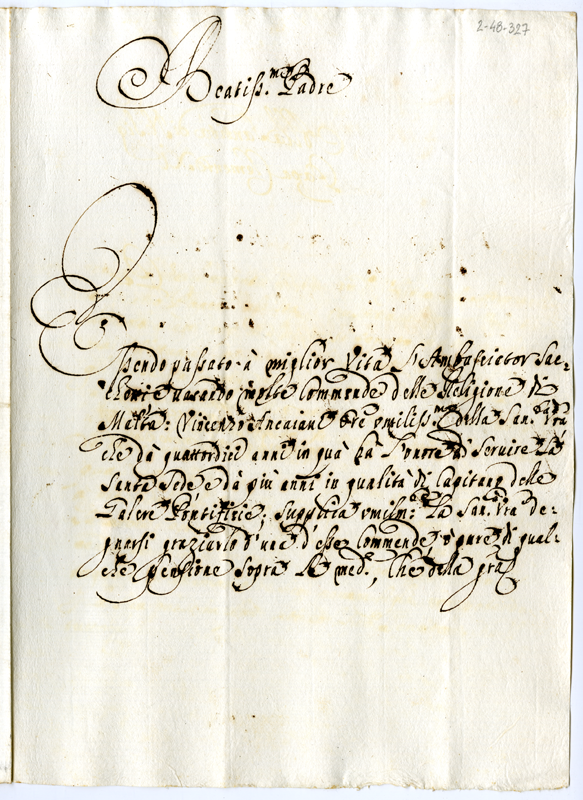 2-48-327
Beatiss.mo Padre
Essendo passato à miglior Vita l'Ambasciator Sac-
chetti e vacando molte Commende della Religione di
Malta: Vincenzo Ancaiani Ore umiliss.mo della San.tà Vra
che dà quattordici anni in quà hà l'onore di servire la
Santa Sede e dà più anni in qualità di Capitano delle
Galere Pontificie; supplica umilm.te La San.tà Vra de-
gnarsi graziarlo d'una d'esse Commende, ò pure di qual-
che pensione sopra le med.e, Che della gra